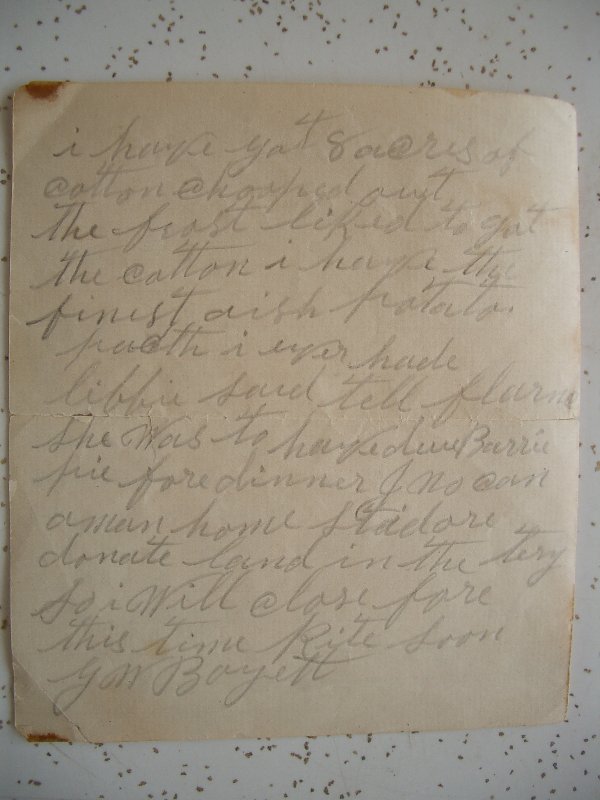 i have got 8 acres of
cotton chopped out
the frost liked to got
the cotton i have the
finest aish potato
pacth i ever hade
libbie said tell
she was to have dewBarrie
pie fore dinner J no can
a man home
donate land in the tery
so i Will close fore
this time Rite soon
G W Boyett